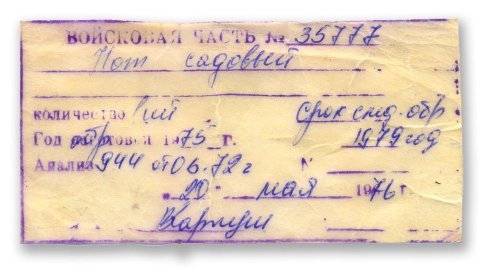 ВОЙСКОВАЯ ЧАСТЬ № 35777
Нож садовый
количество срок след. обр
Год 1975 г. 1979 год
Анализ 944 от 06.72 г N
„20“ мая 1976 г.